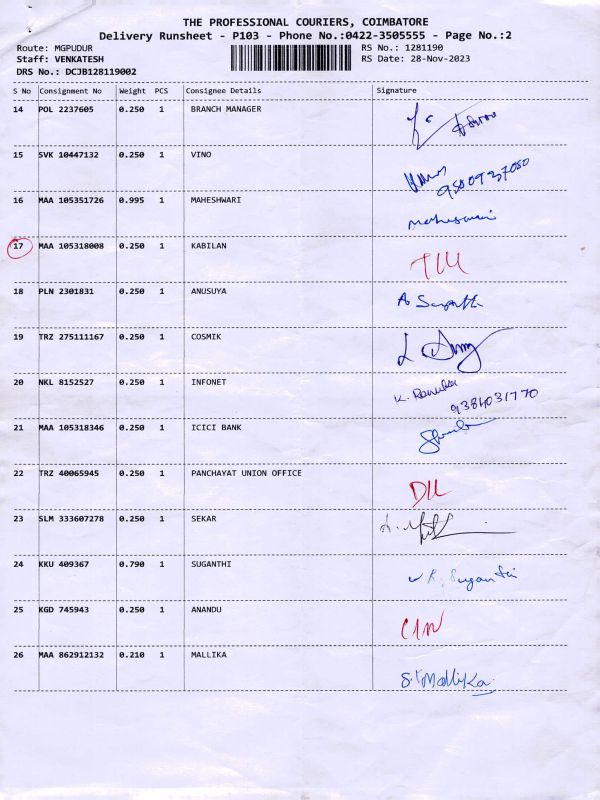 THE PROFESSIONAL COURIERS, COIMBATORE
Delivery Runsheet - P103 - Phone No.:0422-3505555 - Page No.:2
Route: MGPUDUR RS No.: 1281190
Staff: VENKATESH RS Date: 28-Nov-2023
DRS No.: DCJB128119002
S No Consignment No Weight PCS Consignee Details Signature
14 POL 2237605 0.250 1 BRANCH MANAGER
15 SVK 10447132 0.250 1 VINO
9500937080
16 MAA 105351726 0.995 1 MAHESHWARI
17 MAA 105318008 0.250 1 KABILAN
18 PLN 2301831 0.250 1 ANUSUYA
19 TRZ 275111167 0.250 1 COSMIK
20 NKL 8152527 0.250 1 INFONET K. Renuka
9384031770
21 MAA 105318346 0.250 1 ICICI BANK
22 TRZ 40065945 0.250 1 PANCHAYAT UNION OFFICE
DLL
23 SLM 333607278 0.250 1 SEKAR
24 KKU 409367 0.790 1 SUGANTHI
25 KGD 745943 0.250 1 ANANDU
26 MAA 862912132 0.210 1 MALLIKA
S. Mallika